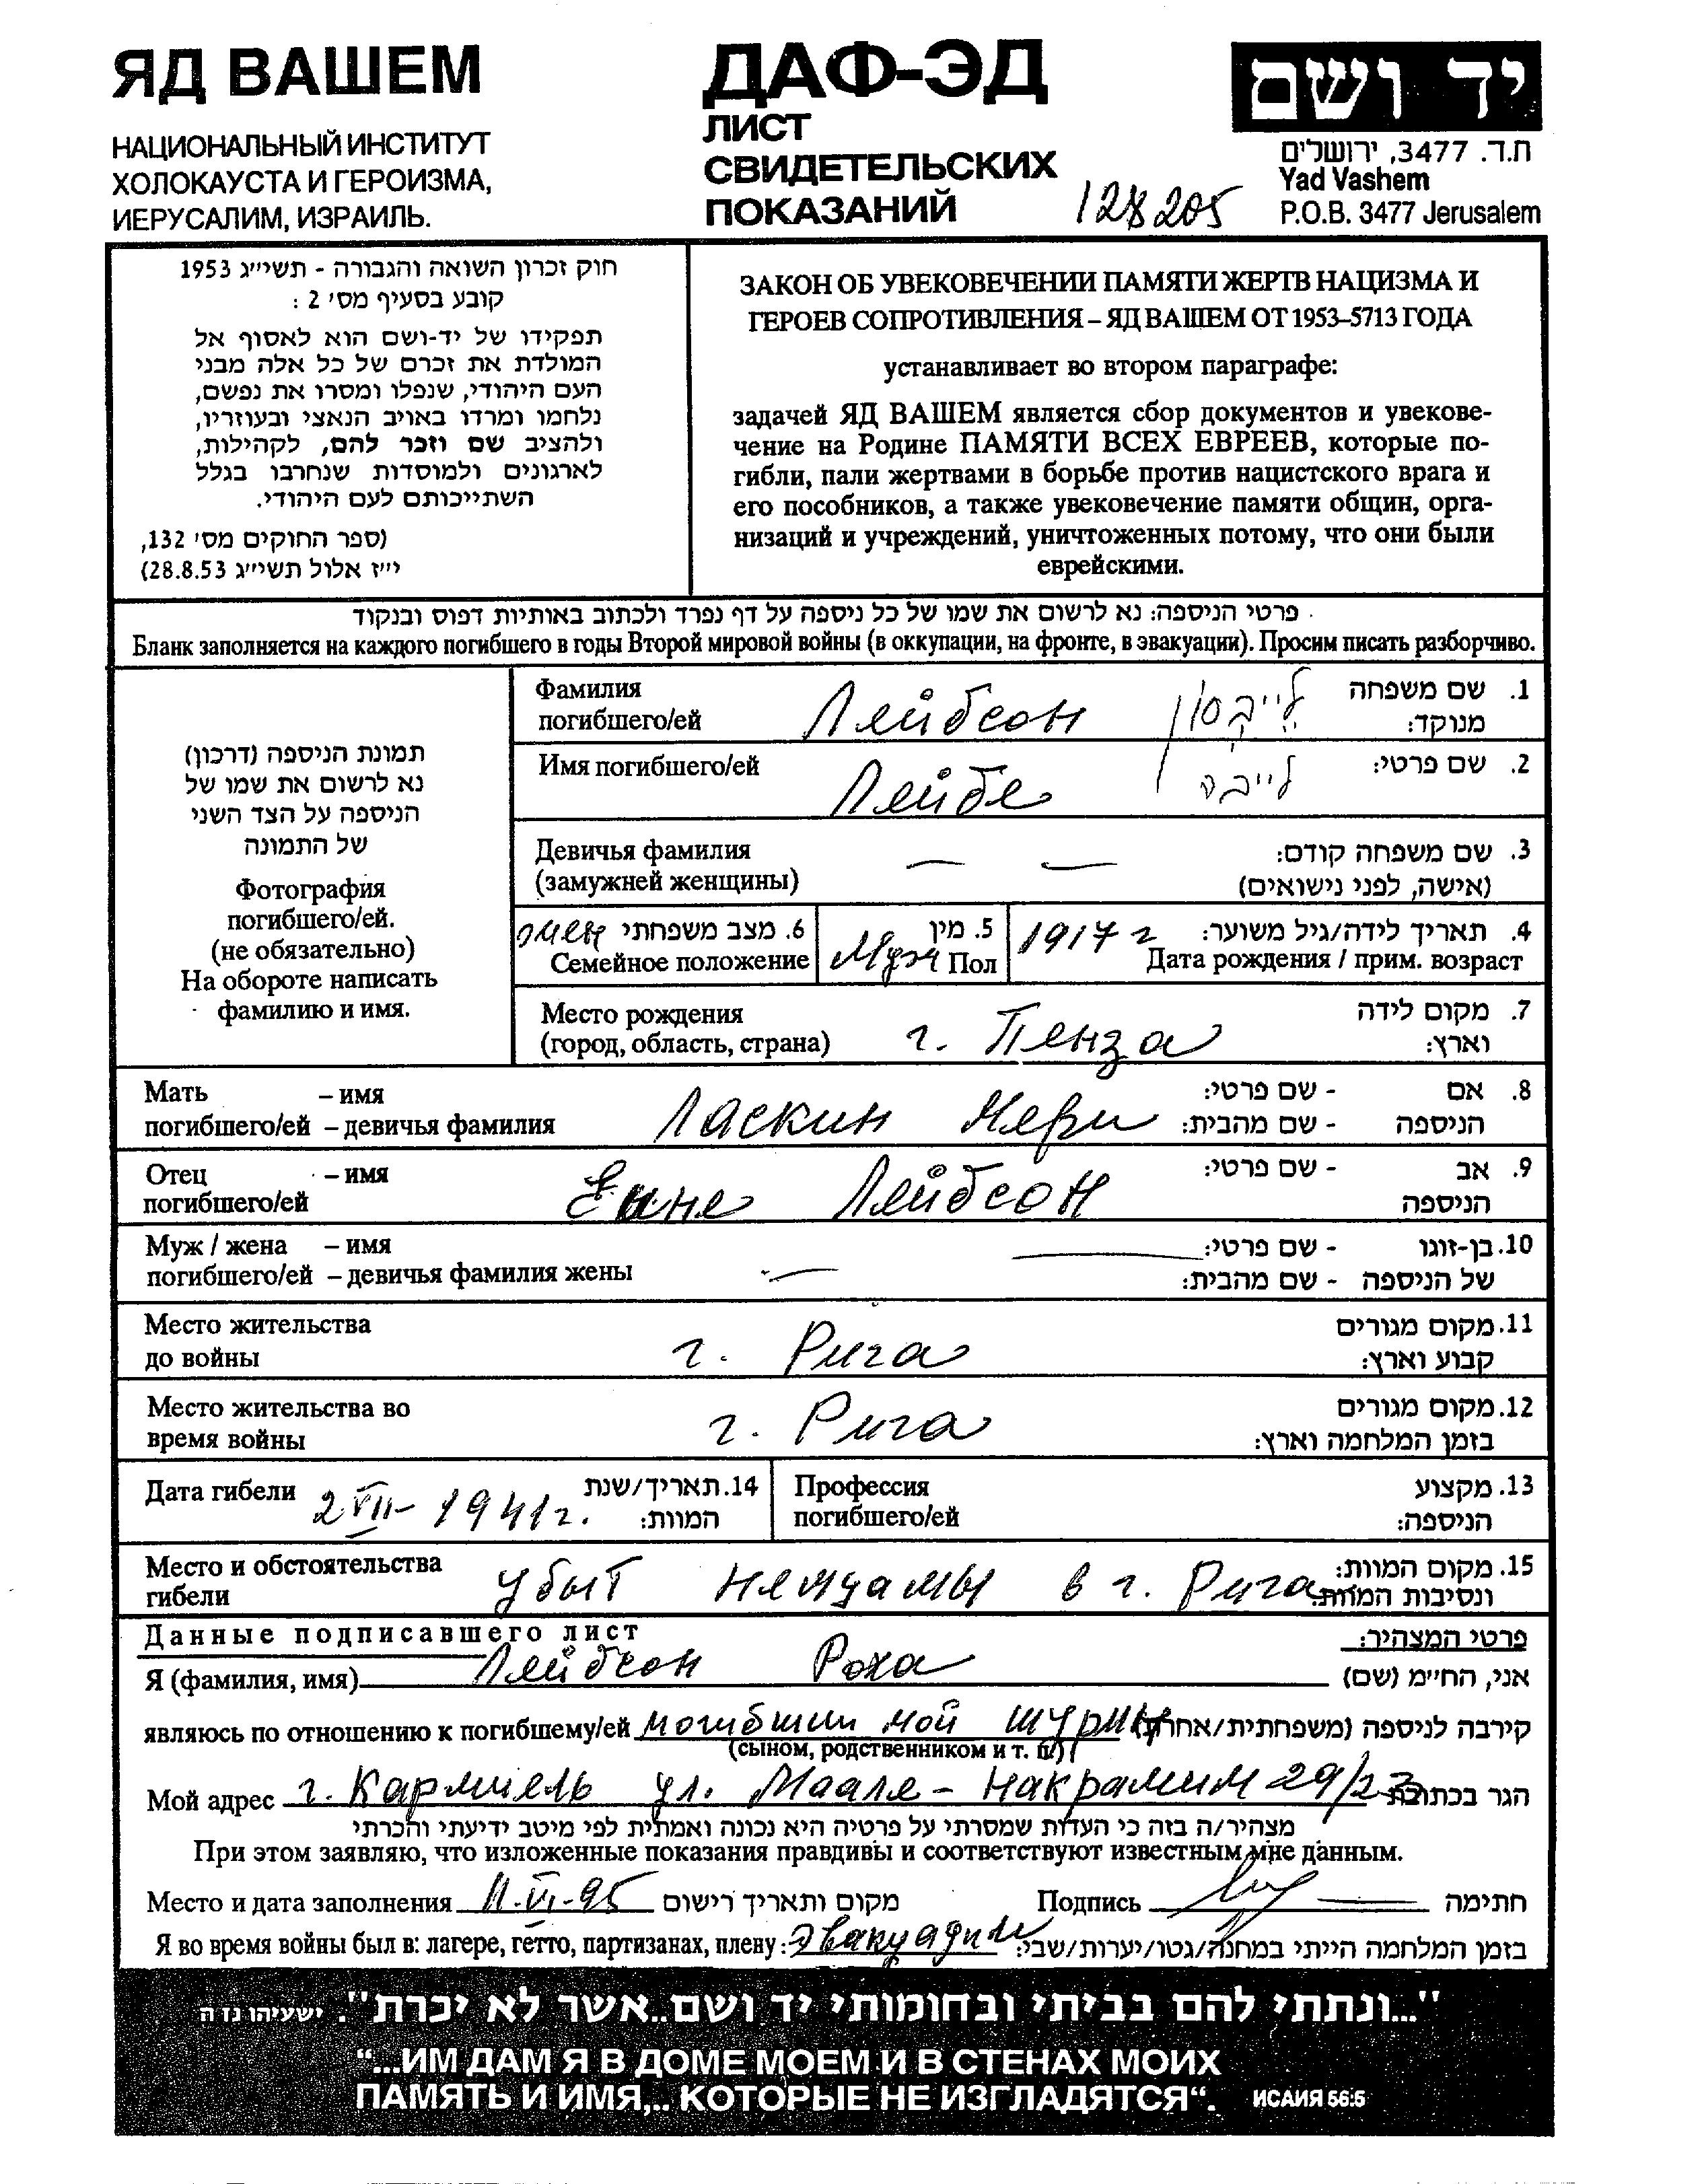 ЯД ВАШЕМ
НАЦИОНАЛЬНЫЙ ИНСТИТУТ
ХОЛОКАУСТА И ГЕРОИЗМА,
ИЕРУСАЛИМ, ИЗРАИЛЬ.
ДАФ-ЭД
ЛИСТ
СВИДЕТЕЛЬСКИХ
ПОКАЗАНИЙ
128205
יד ושם
ת.ד. 3477, ירושלים
Yad Vashem
P.O.B. 3477 Jerusalem
חוק זכרון השואה והגבורה - תשי״ג 1953
קובע בסעיף מס׳ 2 :
תפקידו של יד-ושם הוא לאסוף אל
המולדת את זכרם של כל אלה מבני
העם היהודי, שנפלו ומסרו את נפשם,
נלחמו ומרדו באויב הנאצי ובעוזריו,
ולהציב שם וזכר להם, לקהילות,
לארגונים ולמוסדות שנחרבו בגלל
השתייכותם לעם היהודי.
(ספר החוקים מס׳ 132,
י״ז אלול תשי״ג 28.8.53)
ЗАКОН ОБ УВЕКОВЕЧЕНИИ ПАМЯТИ ЖЕРТВ НАЦИЗМА И
ГЕРОЕВ СОПРОТИВЛЕНИЯ – ЯД ВАШЕМ ОТ 1953–5713 ГОДА
устанавливает во втором параграфе:
задачей ЯД ВАШЕМ является сбор документов и увекове-
чение на Родине ПАМЯТИ ВСЕХ ЕВРЕЕВ, которые по-
гибли, пали жертвами в борьбе против нацистского врага и
его пособников, а также увековечение памяти общин, орга-
низаций и учреждений, уничтоженных потому, что они были
еврейскими.
פרטי הניספה: נא לרשום את שמו של כל ניספה על דף נפרד ולכתוב באותיות דפוס ובנקוד
Бланк заполняется на каждого погибшего в годы Второй мировой войны (в оккупации, на фронте, в эвакуации). Просим писать разборчиво.
תמונת הניספה (דרכון)
נא לרשום את שמו של
הניספה על הצד השני
של התמונה
Фотография
погибшего/ей.
(не обязательно)
На обороте написать
фамилию и имя.
Фамилия
погибшего/ей Лейбсон לייבסון
1. שם משפחה
מנוקד:
Имя погибшего/ей Лейбе לייבה 2. שם פרטי:
Девичья фамилия
(замужней женщины)
3. שם משפחה קודם:
(אישה, לפני נישואים)
6. מצב משפחתי
Семейное положение
5. מין
Муж Пол
1917 г 4. תאריך לידה/גיל משוער:
Дата рождения / прим. возраст
Место рождения
(город, область, страна) г. Пенза
7. מקום לידה
וארץ:
Мать – имя
погибшего/ей – девичья фамилия Ласкин Мери
8. אם - שם פרטי:
הניספה - שם מהבית:
Отец – имя
погибшего/ей Лейбсон
9. אב - שם פרטי:
הניספה
Муж / жена – имя
погибшего/ей – девичья фамилия жены
10. בן-זוגו - שם פרטי:
של הניספה - שם מהבית:
Место жительства
до войны г. Рига
11. מקום מגורים
קבוע וארץ:
Место жительства во
время войны г. Рига
12. מקום מגורים
בזמן המלחמה וארץ:
Дата гибели 2 VII- 1941г.
14. תאריך/שנת
המוות:
Профессия
погибшего/ей
13. מקצוע
הניספה:
Место и обстоятельства
гибели убыт немцамы в г. Рига
15. מקום המוות:
ונסיבות המוות:
Данные подписавшего лист
פרטי המצהיר:
Я (фамилия, имя) Лейбсон Роха אני, הח״מ (שם)
являюсь по отношению к погибшему/ей мой קירבה לניספה (משפחתית/אחרת)
(сыном, родственником и т. п.)
Мой адрес г. Кармиель ул. Маале - Накрамим 29/23 הגר בכתובת
מצהיר/ה בזה כי העדות שמסרתי על פרטיה היא נכונה ואמתית לפי מיטב ידיעתי והכרתי
При этом заявляю, что изложенные показания правдивы и соответствуют известным мне данным.
Место и дата заполнения 11-VI-95 מקום ותאריך רישום Подпись חתימה
Я во время войны был в: лагере, гетто, партизанах, плену: בזמן המלחמה הייתי במחנה/גטו/יערות/שבי:
"...ונתתי להם בביתי ובחומותי יד ושם...אשר לא יכרת". ישעיהו נו ה
“...ИМ ДАМ Я В ДОМЕ МОЕМ И В СТЕНАХ МОИХ
ПАМЯТЬ И ИМЯ,.. КОТОРЫЕ НЕ ИЗГЛАДЯТСЯ“. ИСАИЯ 56:5